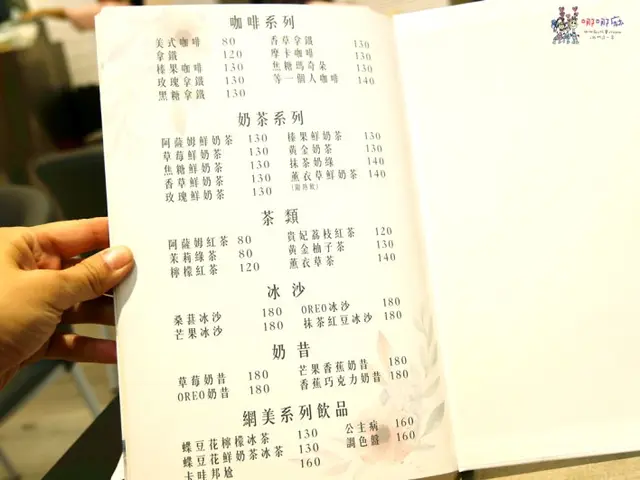 咖啡系列
美式咖啡 80 香草拿鐵 130
拿鐵 120 摩卡咖啡 130
榛果咖啡 130 焦糖瑪奇朵 130
玫瑰拿鐵 130 等一個人咖啡 140
黑糖拿鐵 130
奶茶系列
阿薩姆鮮奶茶 130 榛果鮮奶茶 130
草莓鮮奶茶 130 黃金奶茶 130
焦糖鮮奶茶 130 抹茶奶綠 140
香草鮮奶茶 130 薰衣草鮮奶茶 140
玫瑰鮮奶茶 130
茶類
阿薩姆紅茶 80 貴妃荔枝紅茶 120
茉莉綠茶 80 黃金柚子茶 130
檸檬紅茶 120 薰衣草茶 140
冰沙
桑葚冰沙 180 OREO冰沙 180
芒果冰沙 180 抹茶紅豆冰沙 180
奶昔
草莓奶昔 180 芒果香蕉奶昔 180
OREO奶昔 180 香蕉巧克力奶昔 180
網美系列飲品
蝶豆花檸檬冰茶 130 公主病 160
蝶豆花鮮奶茶冰茶 130 調色盤 160
卡哇邦尬 160